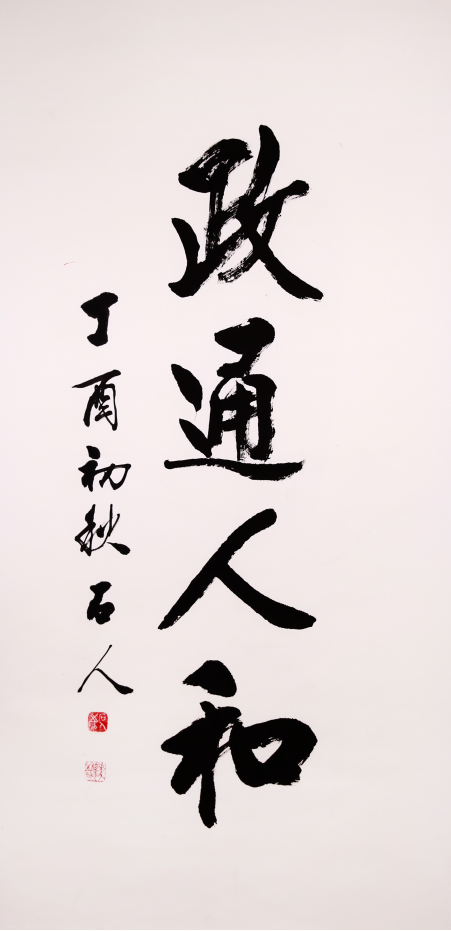 政通人和
丁酉初秋石人